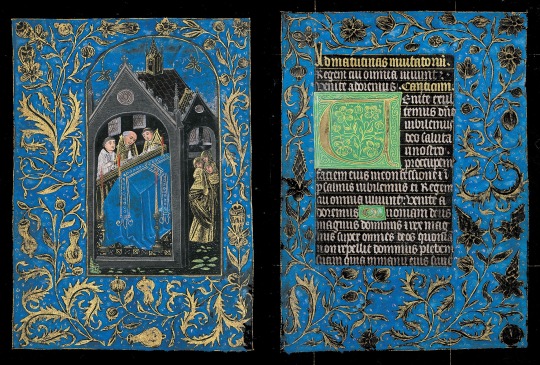 Ad matutinas Inuitatoriu.
Regem cui omnia uiuunt.
Uenite adoremus. Canticum.
Uenite exul
temus dno
iubilemus
deo saluta
ri nostro
preocupem
faciem eius in confessione et i
psalmis iubilemus ei Regem
cui omnia uiuunt: uenite a
doremus Quoniam deus
magnus dominus et rex mag
nus super omnes deos quoni
non repellet dominus plebem
suam quia in manu eius sunt